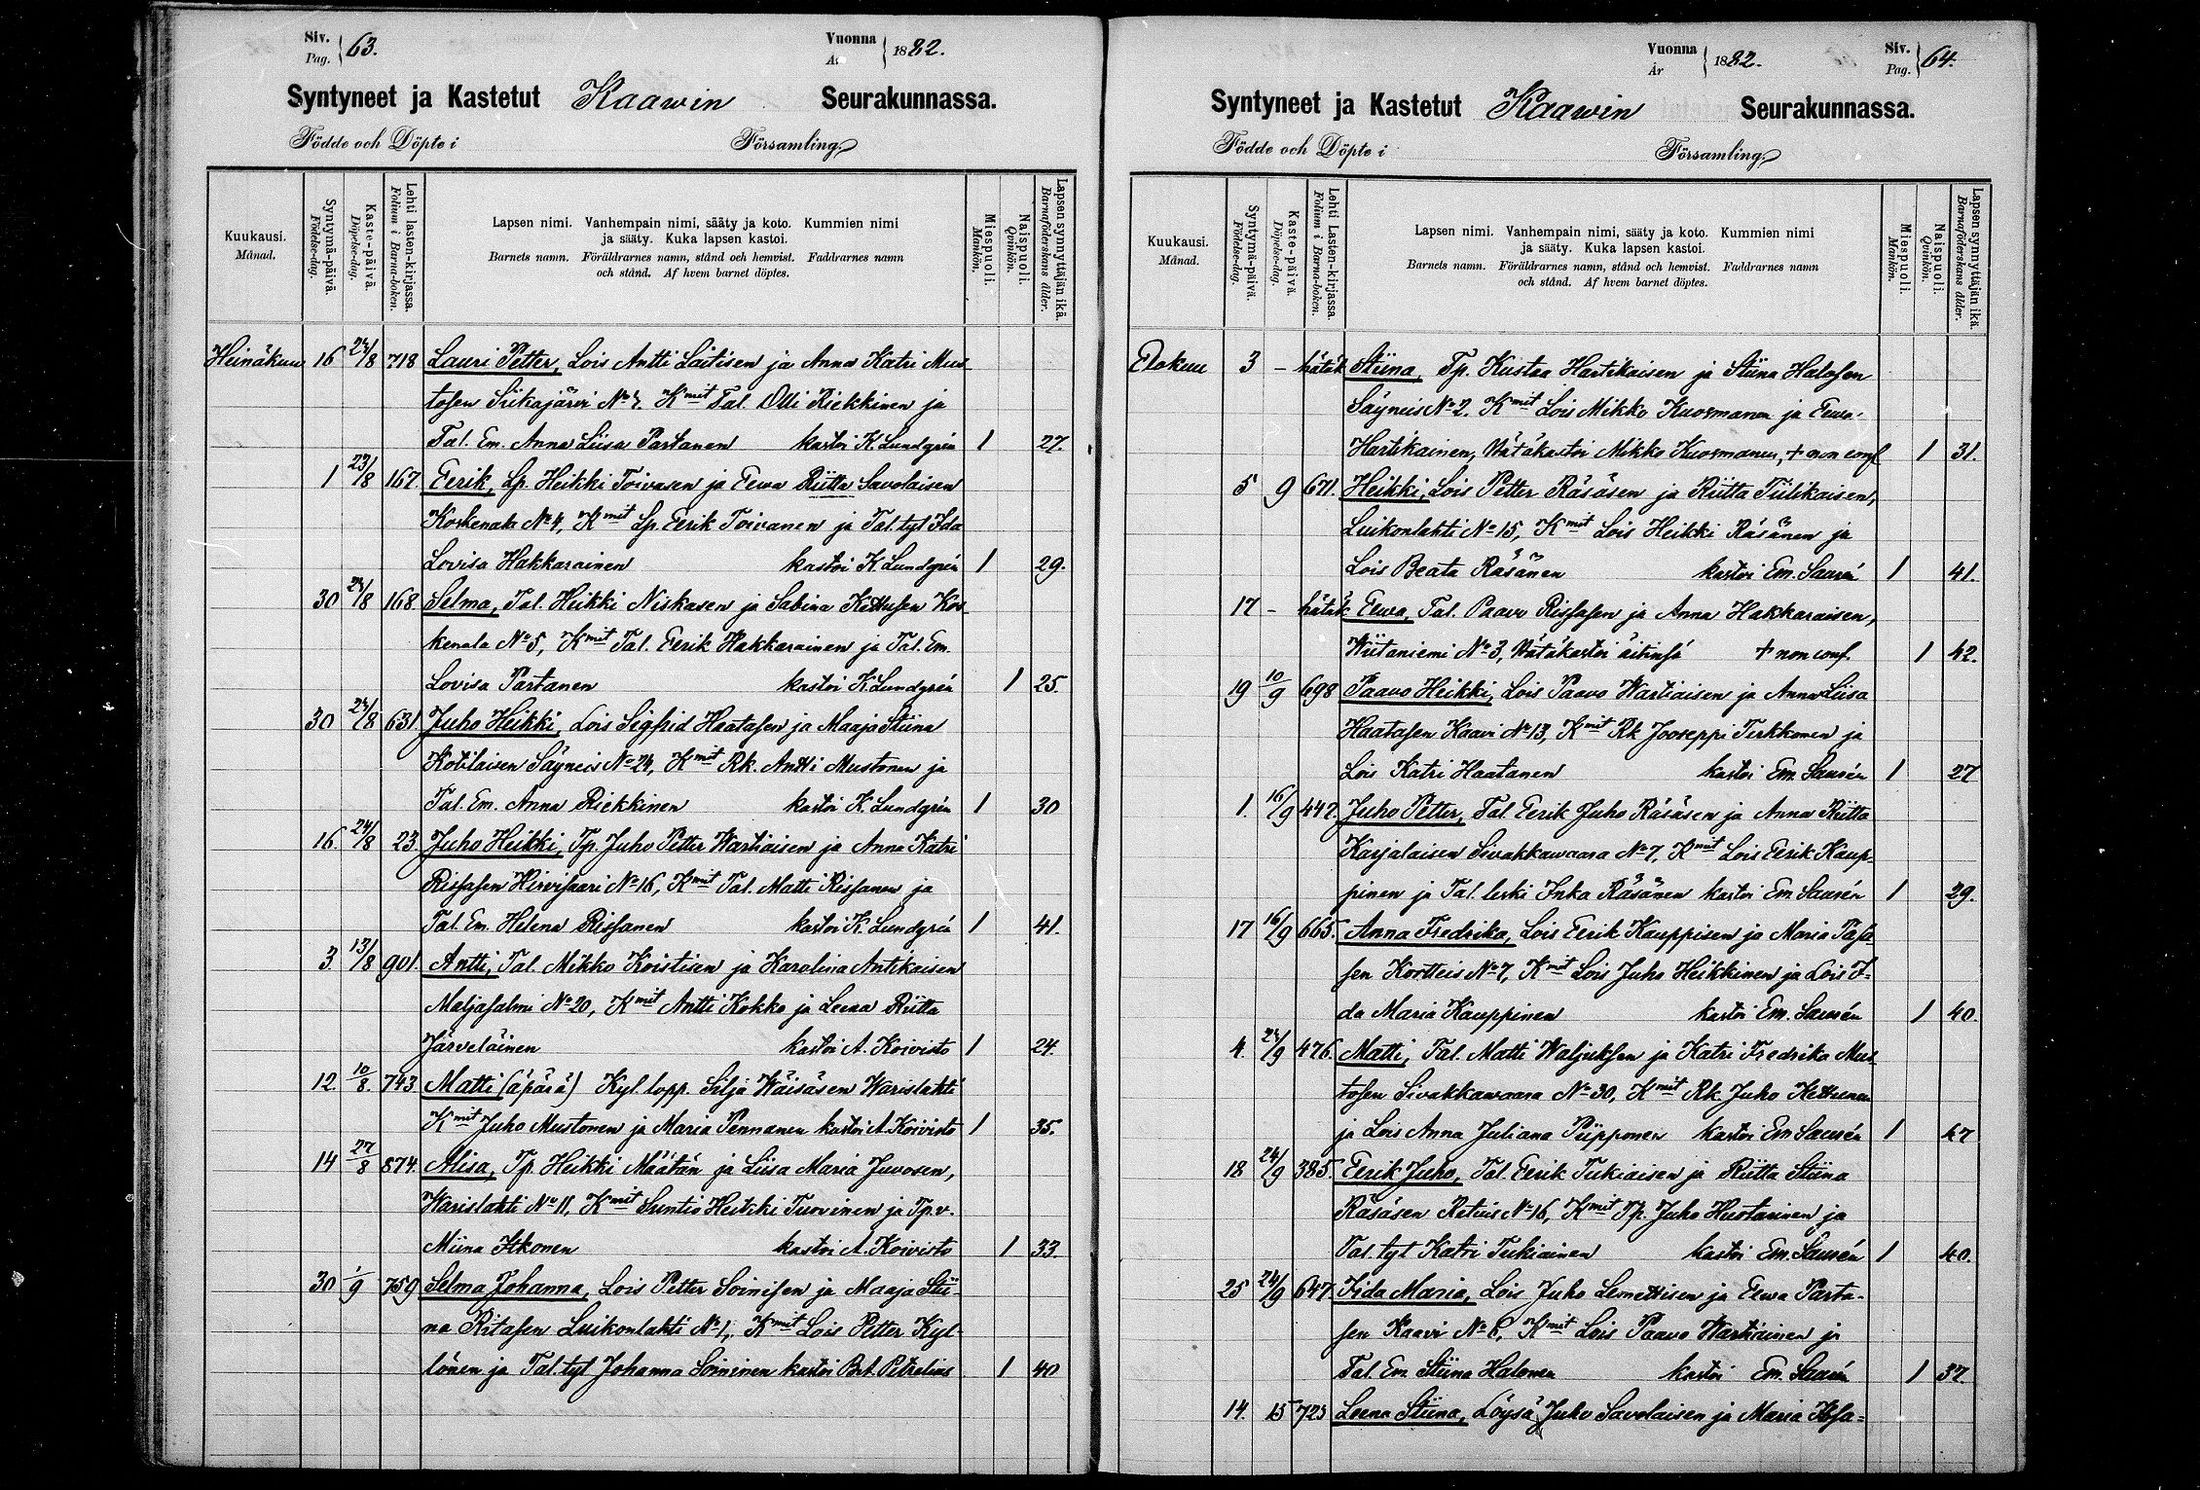 Siv. Pag. 63. Vuonna År 1882.
Syntyneet ja Kastetut Kaawin Seurakunnassa.
Födde och Döpte i Församling
Kuukausi. Månad. Syntymä-päivä. Födelse-dag. Kaste-päivä. Döpelse-dag. Lehti lasten-kirjassa. Folium i Barna-boken. Lapsen nimi. Vanhempain nimi, sääty ja koto. Kummien nimi ja sääty. Kuka lapsen kastoi. Barnets namn. Föräldrarnes namn, stånd och hemvist. Faddrarnes namn och stånd. Af hvem barnet döptes. Miespuoli. Mankön. Naispuoli. Qvinkön. Lapsen synnyttäjän ikä. Barnaföderskans ålder.
Heinäkuu 16 24/8 718 Lauri Petter, Lois Antti Laitisen ja Anna Katri Mus-
tosen Siikajärvi No 7. Kmit Tal. Olli Riekkinen ja
Tal. Em. Anna Liisa Partanen kastoi K Lundgrén 1 27.
1 23/8 167. Eerik, Lp. Heikki Toivasen ja Eewa Riitta Savolaisen
Koskenala No 4, Kmit Lp. Eerik Toivanen ja Tal. tyt Ida
Lovisa Hakkarainen kastoi K Lundgrén 1 29.
30 24/8 168 Selma, Tal. Heikki Niskasen ja Sabina Kettusen Kos-
kenala No 5, Kmit Tal. Eerik Hakkarainen ja Tal. Em.
Lovisa Partanen kastoi K. Lundgrén 1 25.
30 24/8 631 Juho Heikki, Lois Sigfrid Haatasen ja Maaja Stiina
Kotilaisen Säyneis No 24, Kmit Rk. Antti Mustonen ja
Tal. Em. Anna Riekkinen kastoi K. Lundgrén 1 30
16. 24/8 23 Juho Heikki, Tp. Juho Petter Wartiaisen ja Anna Katri
Rissasen Hirvisaari No 16, Kmit Tal. Matti Rissanen ja
Tal. Em. Helena Rissanen kastoi K. Lundgrén 1 41.
3. 13/8 901. Antti, Tal. Mikko Koistisen ja Karolina Antikaisen
Maljasalmi No 20, Kmit Antti Kokko ja Leena Riitta
Järveläinen kastoi A. Koivisto 1 24.
12. 10/8. 743. Matti (äpärä) Kyl. lopp. Silja Wäisäsen Warislahti
Kmit Juho Mustonen ja Maria Pennanen kastoi A. Koivisto 1 35.
14 27/8 874. Alisa, Tp. Heikki Määtän ja Liisa Maria Juvosen,
Warislahti No 11, Kmit Suntio Heikki Tuovinen ja Tp. v.
Miina Itkonen kastoi A. Koivisto 1 33.
30 1/9 759 Selma Johanna, Lois Petter Soinisen ja Maaja Stii-
na Ritasen Luikonlahti No 1, Kmit Lois Petter Kyl-
lönen ja Tal. tyt Johanna Soininen kastoi Petrelius 1 40
Vuonna År 1882. Siv. Pag. 64.
Syntyneet ja Kastetut Kaawin Seurakunnassa.
Födde och Döpte i Församling
Kuukausi. Månad. Syntymä-päivä. Födelse-dag. Kaste-päivä. Döpelse-dag. Lehti Lasten-kirjassa. Folium i Barna-boken. Lapsen nimi. Vanhempain nimi, sääty ja koto. Kummien nimi ja sääty. Kuka lapsen kastoi. Barnets namn. Föräldrarnes namn, stånd och hemvist. Faddrarnes namn och stånd. Af hvem barnet döptes. Miespuoli. Mankön. Naispuoli. Qvinkön. Lapsen synnyttäjän ikä. Barnaföderskans ålder.
Elokuu 3 - hätäk Stiina, Tp. Kustaa Hartikaisen ja Stiina Halosen
Säyneis No 2. Kmit Lois Mikko Kuosmanen ja Eewa
Hartikainen, Hätäkastoi Mikko Kuosmanen, + non conf 1 31.
5 9 671. Heikki, Lois Petter Räsäsen ja Riitta Tulikaisen,
Luikonlahti No 15, Kmit Lois Heikki Räsänen ja
Lois Beata Räsänen kastoi Em. Saurén 1 41.
17 - hätäk Eewa, Tal. Paavo Rissasen ja Anna Hakkaraisen,
Wiitaniemi No 3, Hätäkastoi äitinsä + non conf. 1 42.
19 10/9 698 Paavo Heikki, Lois Paavo Wartiaisen ja Anna Liisa
Haatasen Kaavi No 13, Kmit Rk Jooseppi Tirkkonen ja
Lois Katri Haatanen kastoi Em. Saurén 1 27
1. 16/9 447. Juho Petter, Tal. Eerik Juho Räsäsen ja Anna Riitta
Karjalaisen Sivakkawaara No 7, Kmit Lois Eerik Kaup-
pinen ja Tal. leski Inka Räsänen kastoi Em. Saurén 1 29.
17 16/9 665. Anna Fredrika, Lois Eerik Kauppisen ja Maria Pasa-
sen Kortteis No 7, Kmit Lois Juho Heikkinen ja Lois I-
da Maria Kauppinen kastoi Em. Saurén 1 40.
4. 24/9 476. Matti, Tal. Matti Waljuksen ja Katri Fredrika Mus-
tosen Sivakkawaara No 30, Kmit Rk. Juho Kettunen
ja Lois Anna Juliana Piipponen kastoi Em Saurén 1 47
18 24/9 385. Eerik Juho, Tal. Eerik Tukiaisen ja Riitta Stiina
Räsäsen Retuis No 16, Kmit Tp. Juho Huotarinen ja
Tal. tyt Katri Tukiainen kastoi Em. Saurén 1 40.
25 24/9 647. Iida Maria, Lois Juho Lemettisen ja Eewa Parta-
sen Kaavi No 6, Kmit Lois Paavo Wartiainen ja
Tal. Em. Stiina Halonen kastoi Em. Saurén 1 37.
14. 15 723 Leena Stiina, Löysä Juho Savolaisen ja Maria